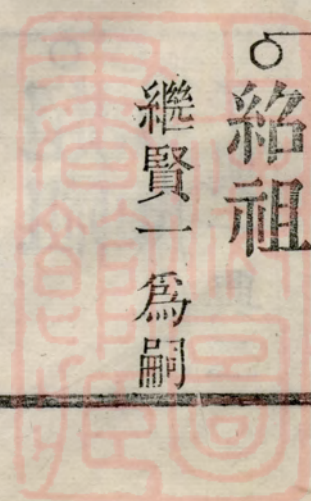 紹祖
繼賢一爲嗣